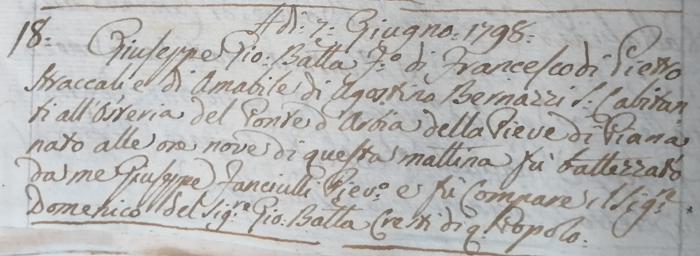 Adì: 7: Giugno: 1798:
18: Giuseppe Gio: Batta F:o di Francesco di Pietro
Straccali e di Amabile di Agostino Bernazzi S: C abitan
ti all'Osteria del Ponte d'Arbia della Pieve di Piana
nato alle ore nove di questa mattina fù battezzato
da me Giuseppe Fanciulli Piev:o e fù Compare il Sig:re
Domenico del Sig:re Gio: Batta Cresti di q: Popolo: